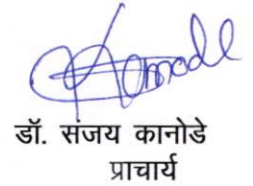 डॉ. संजय कानोडे
प्राचार्य